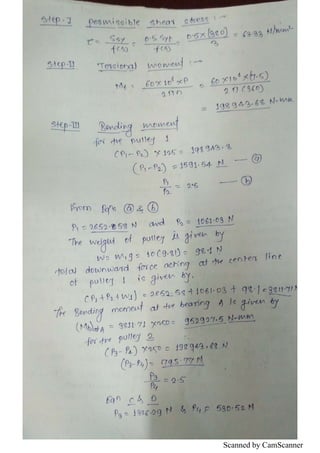 Step-I permissible shear stress :-
τ = Ssy/f(s) = 0.5 Syt/f(s) = 0.5×(380)/3 = 63.33 N/mm²
Step-II Torsional moment :-
Mt = 60×10⁶×P/2πn = 60×10⁶×(7.5)/2π(360)
= 198943.68 N-mm
Step-III Bending moment
for the pulley 1
(P1-P2) × 125 = 198943.8
(P1-P2) = 1591.54 N — (a)
P1/P2 = 2.5 — (b)
From Eqn (a) & (b)
P1 = 2652.58 N and P2 = 1061.03 N
The weight of pulley is given by
W = m1g = 10(9.81) = 98.1 N
total downward force acting at the center line
of pulley 1 is given by.
(P1+P2+W1) = 2652.58 + 1061.03 + 98.1 = 3811.71 N
The Bending moment at the bearing A is given by
(Mb)at A = 3811.71 ×250 = 952927.5 N-mm
for the pulley 2
(P3-P4) ×250 = 198943.68
(P3-P4) = 795.77 N
P3/P4 = 2.5
Eqn C & D
P3 = 1326.29 N & P4 = 530.52 N
Scanned by CamScanner